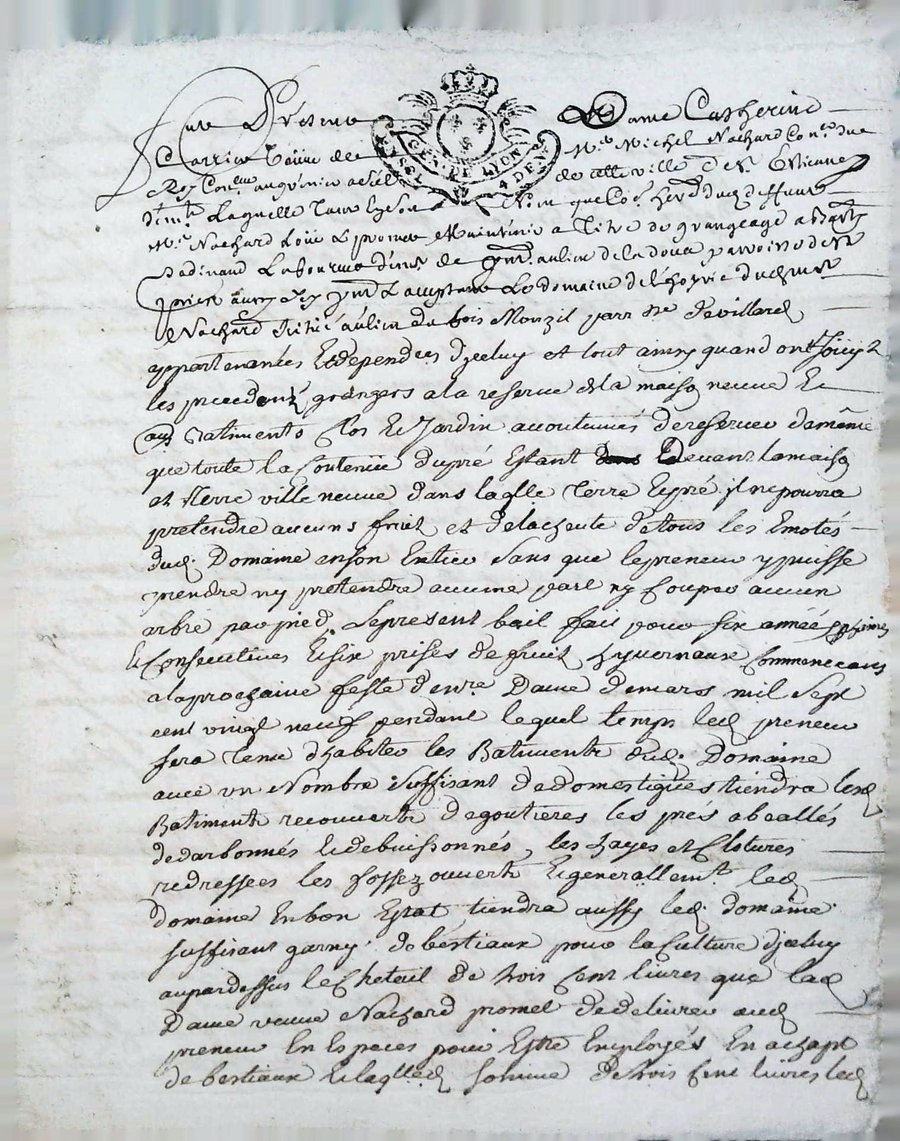 Fut Présente Dame Catherine
GEN. DE LYON
4 DEN
Carrier veuve de Mre Michel Nachard Coner du
Roy de cette ville de St Etienne
y demt Laquelle
Mre Nachard Loüe & promet Maintenir a Titre de grangeage a
Laboureur demt de au lieu de la doua parroisse de St
priest aussy icy pnt & acceptant Le domaine de l'hoyrie dud Mre
Nachard Scitué au lieu du bois Monzil parr sse de villard
appartenances Et dependces d'jceluy et tout ainsy quand ont jouy
les precedents grangers a la reserve de la maison neuve Et
aux Batiments Clos Et Jardin accoutumés de reserver de même
que toute la Contenüe du pré Estant devant la maison
et Terre ville neuve dans laqlle Terre Et pré il ne pourra
pretendre aucuns fruit et de la cheute de tous les Emotés
dud. Domaine en son Entier Sans que le preneur y puisse
prendre ny pretendre aucune part ny Couper aucun
arbre par pied. Le present bail fait pour six année
& Consecutives Et six prises de fruit hyvernaux Commencans
a la prochaine feste de nre Dame de mars mil Sept
cent vingt neuf pendant lequel temps led preneur
sera Tenu d'habiter les Batiments dud. Domaine
avec un Nombre Suffisant de domestiques tiendra lesd
Batiments recouverts de goutieres les prés abeallés
dedarbonnés Et debuissonnés, les hayes et Clotures
redressées les fossez ouverts Et generallemt. led
domaine En bon Estat tiendra aussy led. domaine
suffisant garny de bestiaux pour la Culture d'jceluy
au pardessus le Cheteil de trois Cent livres que lad
Dame veuve Nachard promet de delivrer aud
preneur En Especes pour Estre Employés En achapt
de bestiaux & laqlled somme de trois Cent livres led